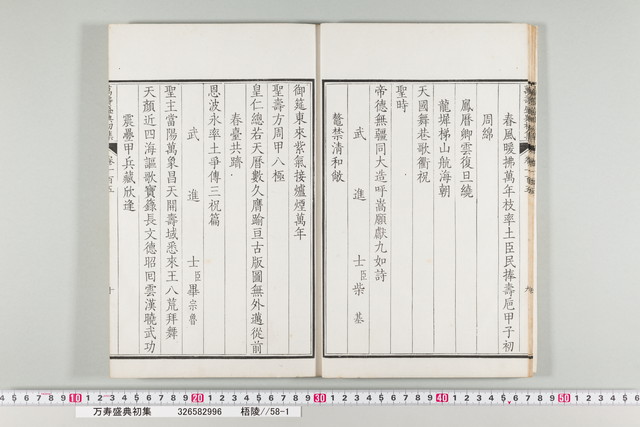 春風暖拂萬年枝率土臣民捧壽巵甲子初
周綿
鳳曆卿雲復旦繞
龍墀梯山航海朝
天國舞巷歌衢祝
聖時
帝德無疆同大造呼嵩願獻九如詩
武進士臣柴基
鼇禁清和敞
御筵東來紫氣接爐煙萬年
聖壽方周甲八極
皇仁總若天曆數久膺踰亘古版圖無外邁從前
春臺共躋
恩波永率土爭傳三祝篇
武進士臣畢宗魯
聖主當陽萬象昌天開壽域悉來王八荒拜舞
天顏近四海謳歌寶籙長文德昭回雲漢曉武功
震疊甲兵藏欣逢
10 20 30 40 50
万寿盛典初集 326582996 梧陵//58-1